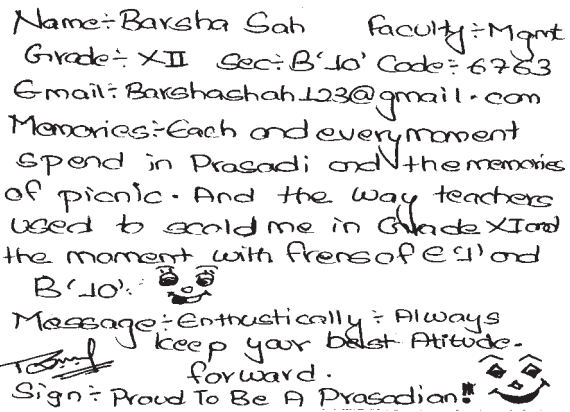 Name÷Barsha Sah Faculty÷Mgmt
Grade÷XII Sec÷B'10' Code÷6763
Email÷Barshashah123@gmail.com
Memories÷Each and every moment
spend in Prasadi and the memories
of picnic. And the way teachers
used to scold me in Grade XI and
the moment with frens of E'1' and
B'10'.
Message÷Enthustically÷Always
keep your best Atitude.
forward.
Sign÷Proud To Be A Prasadian!!